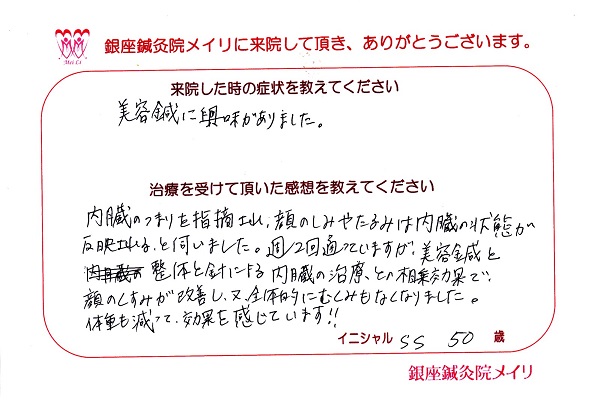 Mei Li
銀座鍼灸院メイリに来院して頂き、ありがとうございます。
来院した時の症状を教えてください
美容鍼に興味がありました。
治療を受けて頂いた感想を教えてください
内臓のつまりを指摘され、顔のしみやたるみは内臓の状態が
反映される、と伺いました。週1/2回通っていますが、美容鍼と
整体と針による内臓の治療、との相乗効果で、
顔のくすみが改善し、又、全体的にむくみもなくなりました。
体重も減って、効果を感じています!!
イニシャル SS 50 歳
銀座鍼灸院メイリ